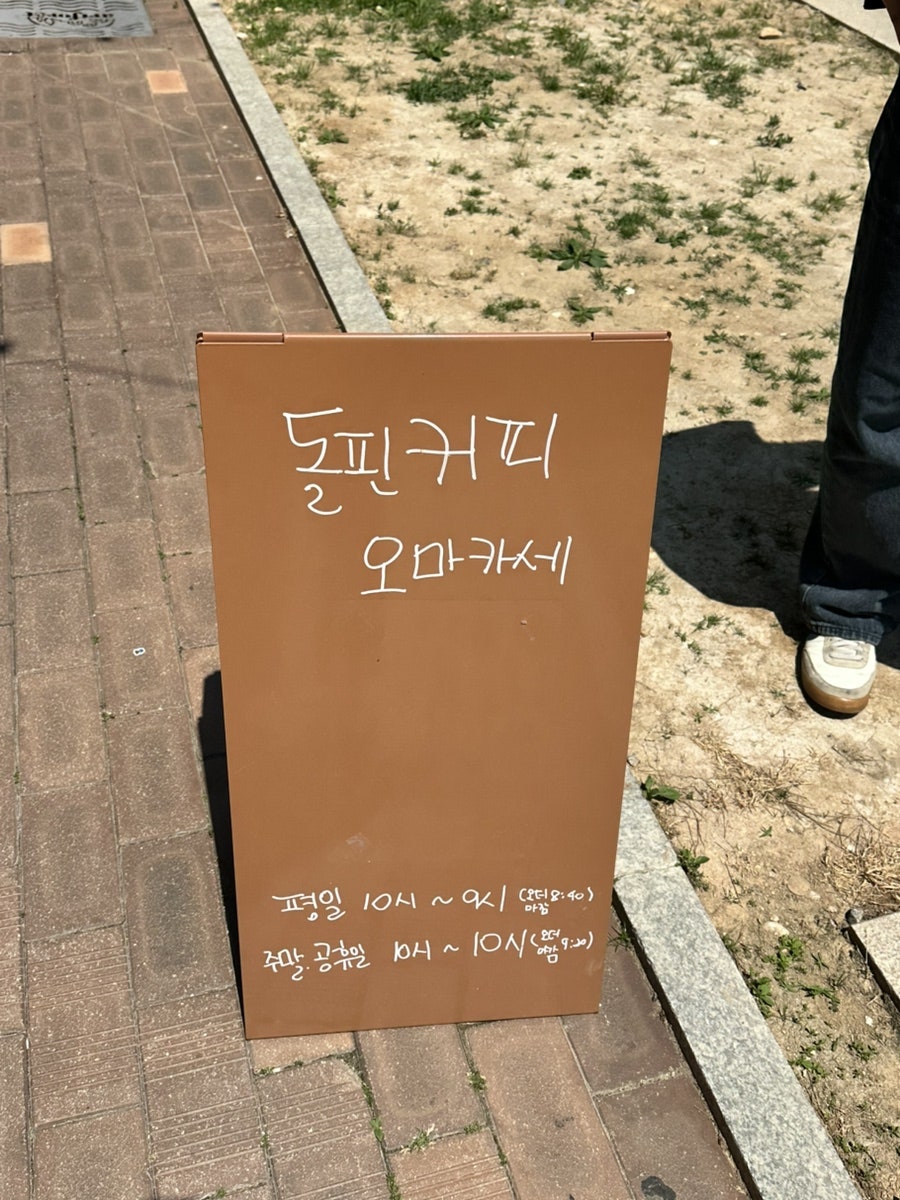 돌핀커피
오마카세
평일 10시 ~ 9시 (오더 8:40)
마감
주말.공휴일 10시 ~ 10시 (오더
마감 9:30)